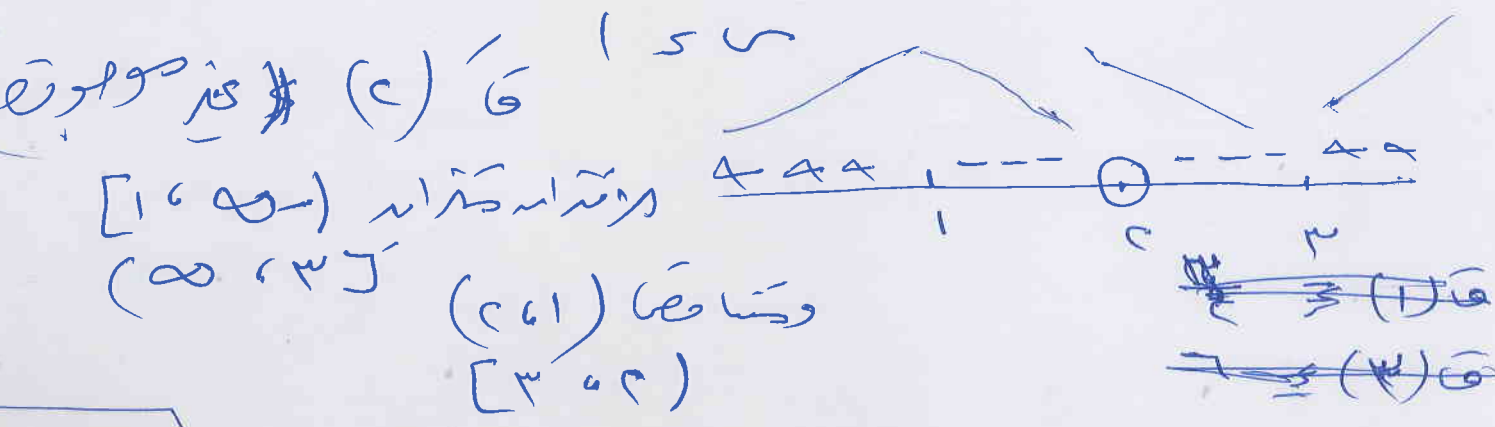 س = ١
قَ (٢) غير موجودة
+ + + - - - - - - + +
١ ٢ ٣
الاقتران متزايد (-∞ ، ١]
[٣ ، ∞)
ومتناقص (١ ، ٢)
(٢ ، ٣]
قَ (١) =
قَ (٣) =